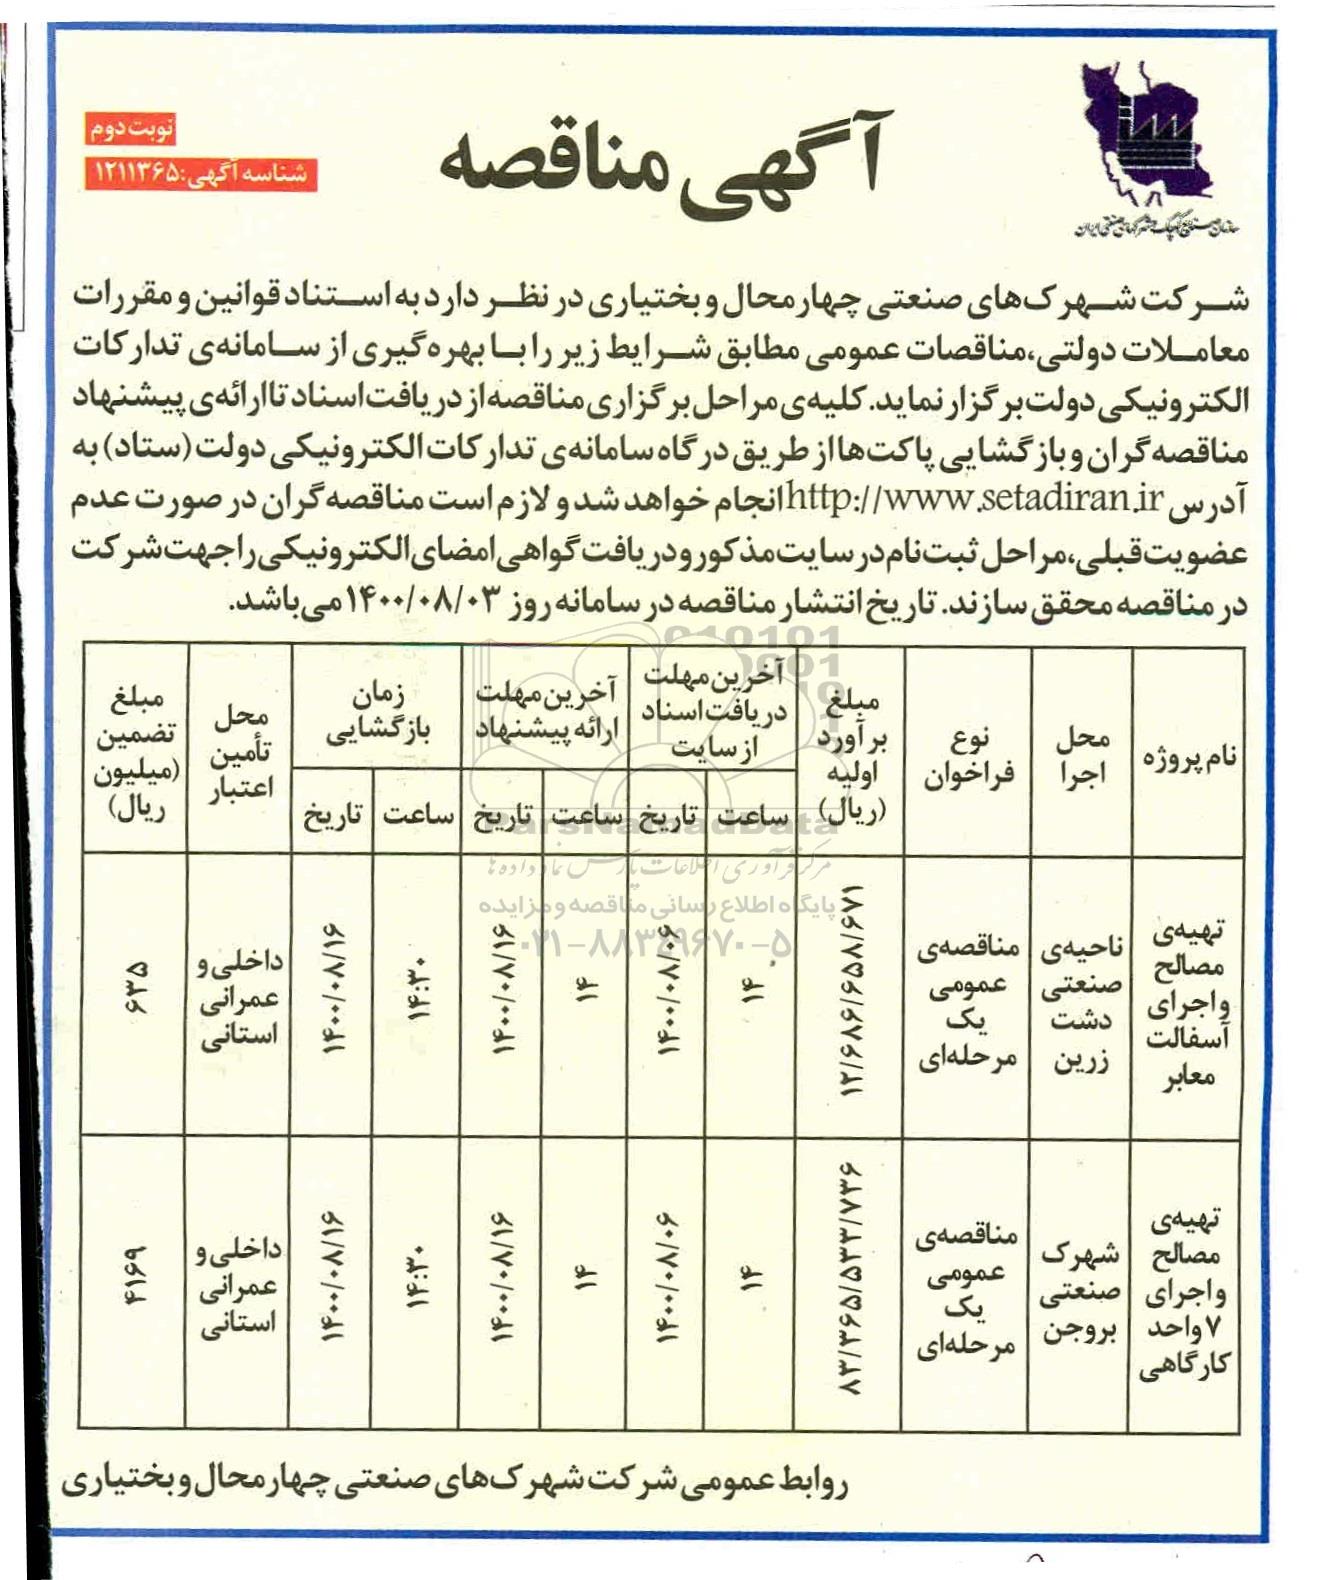 سازمان صنایع کوچک و شهرکهای صنعتی ایران
آگهی مناقصه
نوبت دوم
شناسه آگهی:۱۲۱۱۳۶۵
شرکت شهرک‌های صنعتی چهارمحال و بختیاری در نظر دارد به استناد قوانین و مقررات
معاملات دولتی، مناقصات عمومی مطابق شرایط زیر را با بهره‌گیری از سامانه‌ی تدارکات
الکترونیکی دولت برگزار نماید. کلیه‌ی مراحل برگزاری مناقصه از دریافت اسناد تا ارائه‌ی پیشنهاد
مناقصه‌گران و بازگشایی پاکت‌ها از طریق درگاه سامانه‌ی تدارکات الکترونیکی دولت (ستاد) به
آدرس http://www.setadiran.ir انجام خواهد شد و لازم است مناقصه‌گران در صورت عدم
عضویت قبلی، مراحل ثبت‌نام در سایت مذکور و دریافت گواهی امضای الکترونیکی را جهت شرکت
در مناقصه محقق سازند. تاریخ انتشار مناقصه در سامانه روز ۱۴۰۰/۰۸/۰۳ می‌باشد.
نام پروژه
محل
اجرا
نوع
فراخوان
مبلغ
برآورد
اولیه
(ریال)
آخرین مهلت
دریافت اسناد
از سایت
ساعت
تاریخ
آخرین مهلت
ارائه پیشنهاد
ساعت
تاریخ
زمان
بازگشایی
ساعت
تاریخ
محل
تأمین
اعتبار
مبلغ
تضمین
(میلیون
ریال)
تهیه‌ی
مصالح
و اجرای
آسفالت
معابر
ناحیه‌ی
صنعتی
دشت
زرین
مناقصه‌ی
عمومی
یک
مرحله‌ای
۱۲/۶۸۶/۶۵۸/۶۷۱
۱۴
۱۴۰۰/۰۸/۰۶
۱۴
۱۴۰۰/۰۸/۱۶
۱۴:۳۰
۱۴۰۰/۰۸/۱۶
داخلی و
عمرانی
استانی
۶۳۵
تهیه‌ی
مصالح
و اجرای
۷ واحد
کارگاهی
شهرک
صنعتی
بروجن
مناقصه‌ی
عمومی
یک
مرحله‌ای
۸۳/۳۶۵/۵۳۳/۷۳۶
۱۴
۱۴۰۰/۰۸/۰۶
۱۴
۱۴۰۰/۰۸/۱۶
۱۴:۳۰
۱۴۰۰/۰۸/۱۶
داخلی و
عمرانی
استانی
۴۱۶۹
ParsNamadData
مرکز فرآوری اطلاعات پارس نماد داده ها
پایگاه اطلاع رسانی مناقصه و مزایده
۰۲۱-۸۸۳۴۹۶۷۰-۵
روابط عمومی شرکت شهرک‌های صنعتی چهارمحال و بختیاری